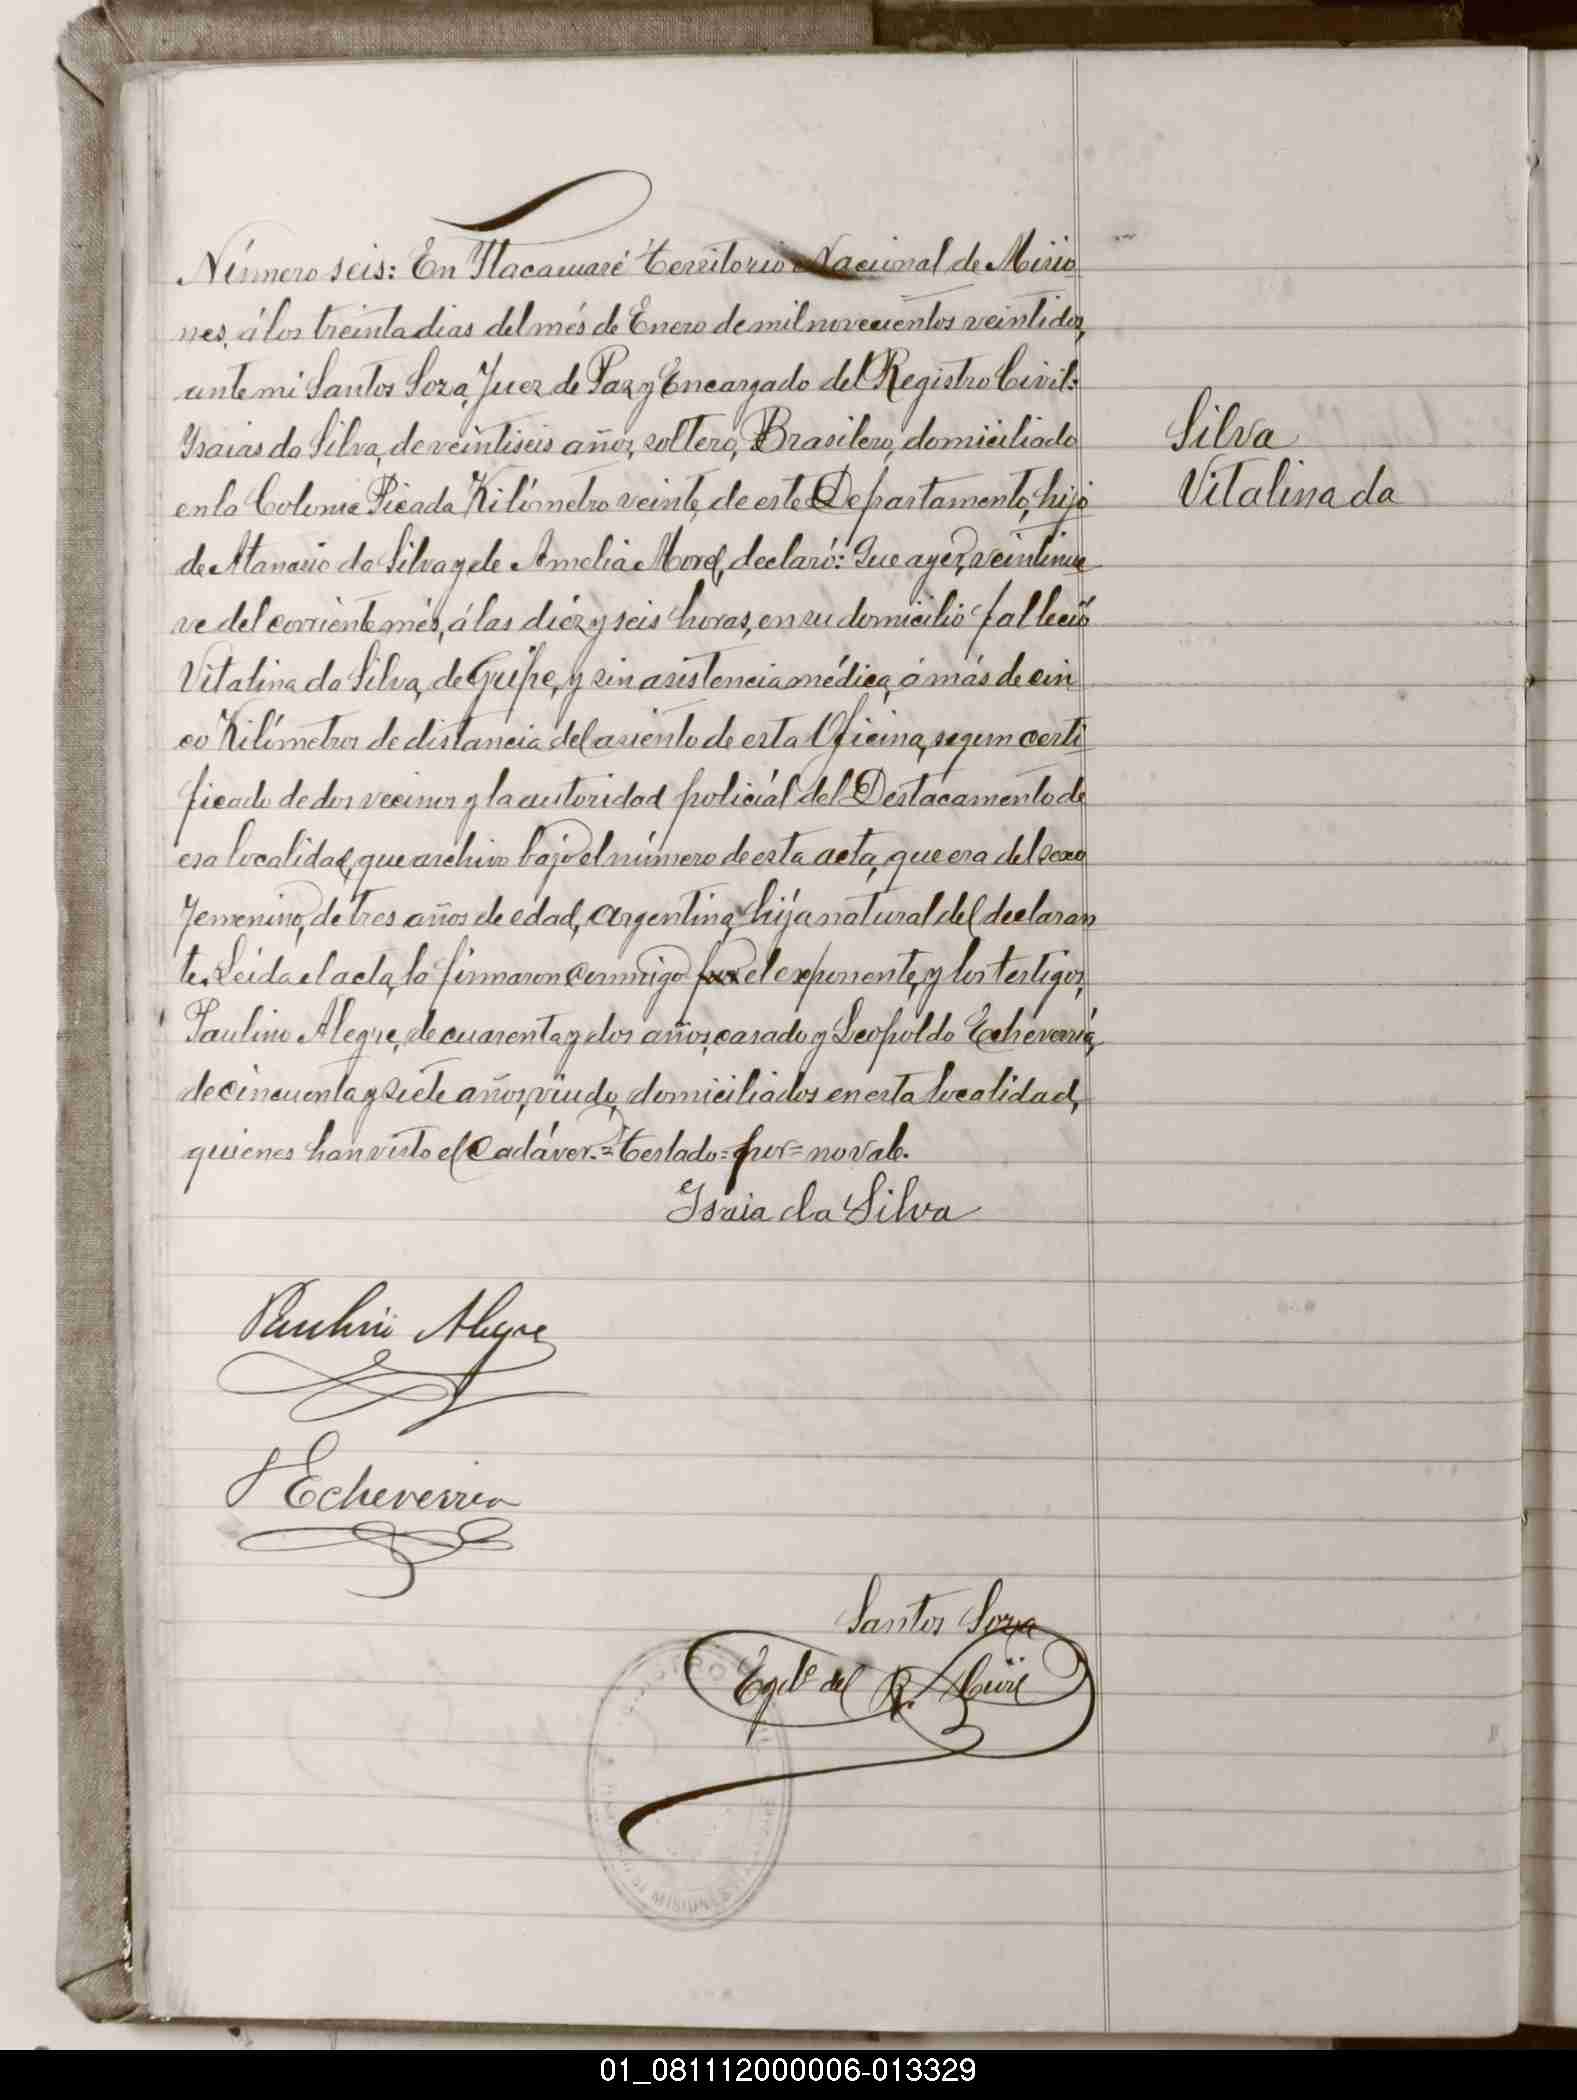 Número seis: En Itacaruaré Territorio Nacional de Misio
nes, á los treinta dias del més de Enero de mil novecientos veintidos,
ante mi Santos Soza, Juez de Paz y Encargado del Registro Civil:
Ysaias da Silva, de veintiseis años, soltero, Brasilero, domiciliado
en la Colonia Picada Kilómetro veinte, de este Departamento, hijo
de Atanasio da Silva y de Amelia Morel, declaró: Que ayer, veintinue
ve del corriente més, á las diéz y seis horas, en su domicilio falleció
Vitalina da Silva, de Gripe, y sin asistencia médica, á más de cin
co Kilómetros de distancia del asiento de esta Oficina, segun certi
ficado de dos vecinos y la autoridad policiál del Destacamento de
esa localidad, que archivo bajo el número de esta acta, que era del sexo
femenino, de tres años de edad, argentina, hija natural del declaran
te. Leida el acta, la firmaron conmigo por el exponente, y los testigos,
Paulino Alegre, de cuarenta y dos años, casado y Leopoldo Echeverria,
de cincuenta y siete años, viudo, domiciliados en esta localidad,
quienes han visto el cadáver.=Testado=por=no vale.
Silva
Vitalina da
Isaia da Silva
Paulino Alegre
Echeverria
Santos Soza
Egdo del R. Civil
MISIONES
01_081112000006-013329